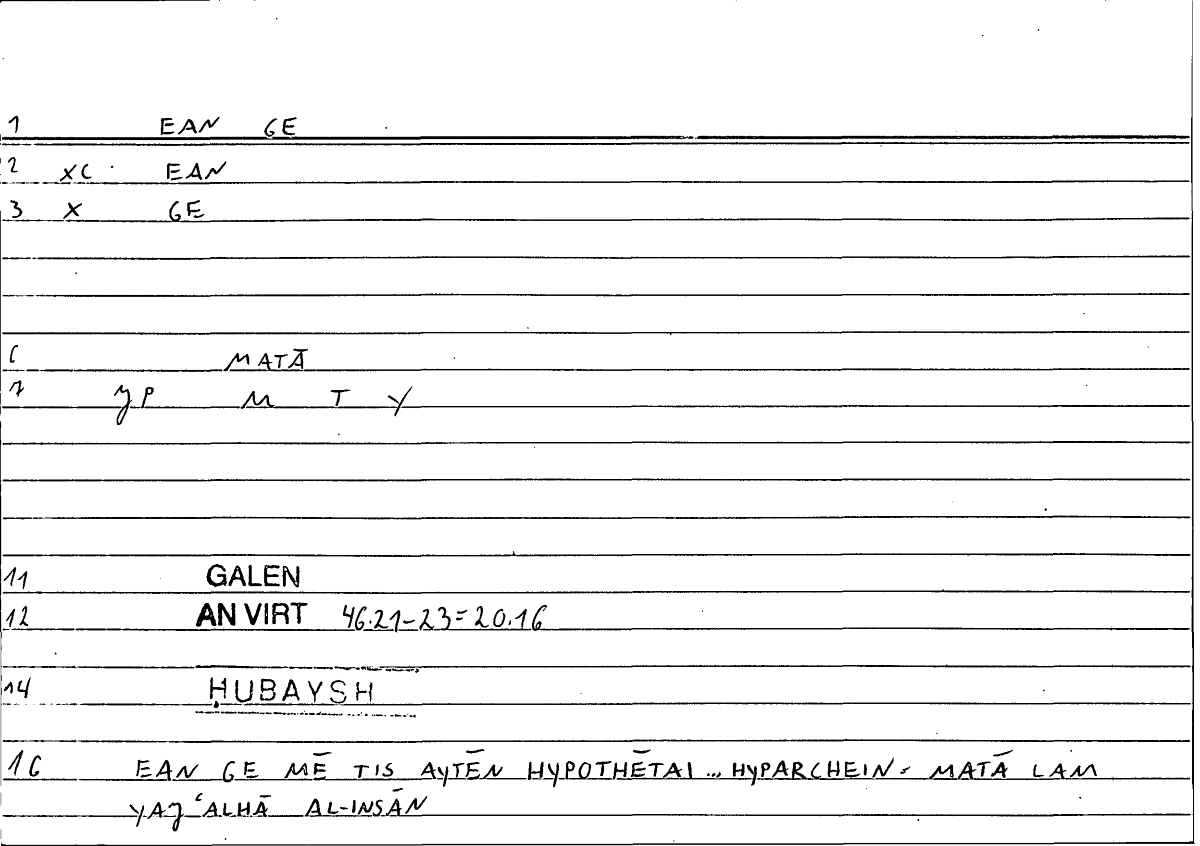 1 EAN GE
2 XC EAN
3 X GE
6 MATĀ
7 JP M T Y
11 GALEN
12 AN VIRT 46.21-23=20.16
14 ḤUBAYSH
16 EAN GE MĒ TIS AYTĒN HYPOTHĒTAI ... HYPARCHEIN = MATĀ LAM
YAJʿALHĀ AL-INSĀN